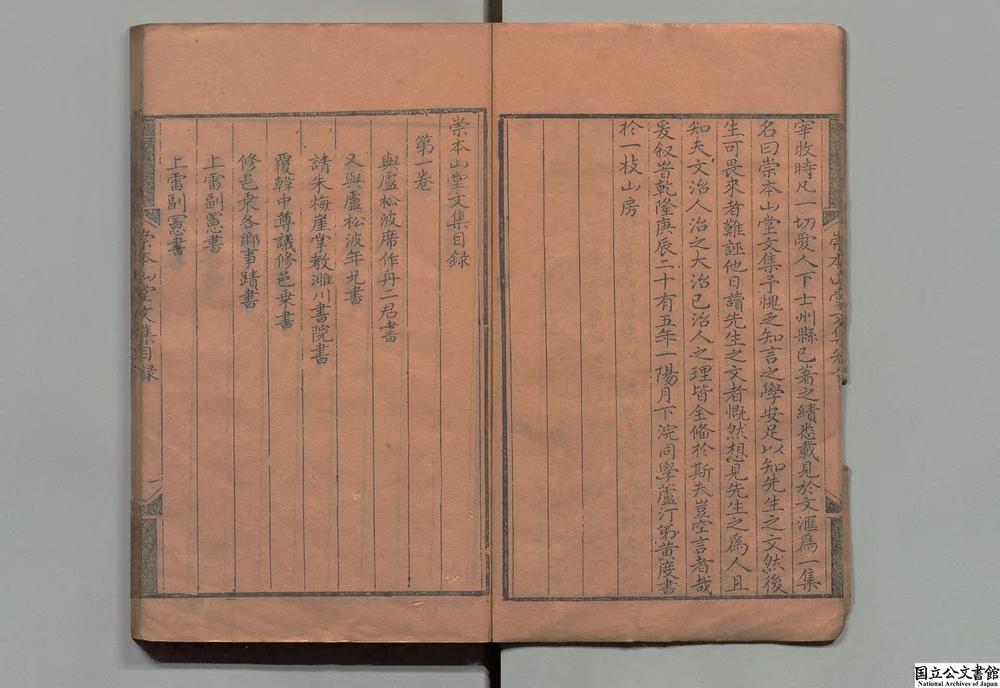 宰牧時凡一切愛人下士州縣已著之績悉載見於文滙為一集
名曰崇本山堂文集予愧乏知言之學安足以知先生之文然後
生可畏來者難誣他日讀先生之文者慨然想見先生之為人且
知夫文治人治之大治已治人之理皆全偹於斯夫豈空言者哉
爰叙旹乾隆庚辰二十有五年一陽月下浣同學蘆汀弟黄度書
於一枝山房
崇本山堂文集目録
第一卷
與盧松波席作丹二君書
又與盧松波年兄書
請朱梅崖掌教濉川書院書
覆韓中尊議修邑乗書
修邑乗各鄉事蹟書
上雷副憲書
上雷副憲書
崇本山堂文集目録
国立公文書館
National Archives of Japan